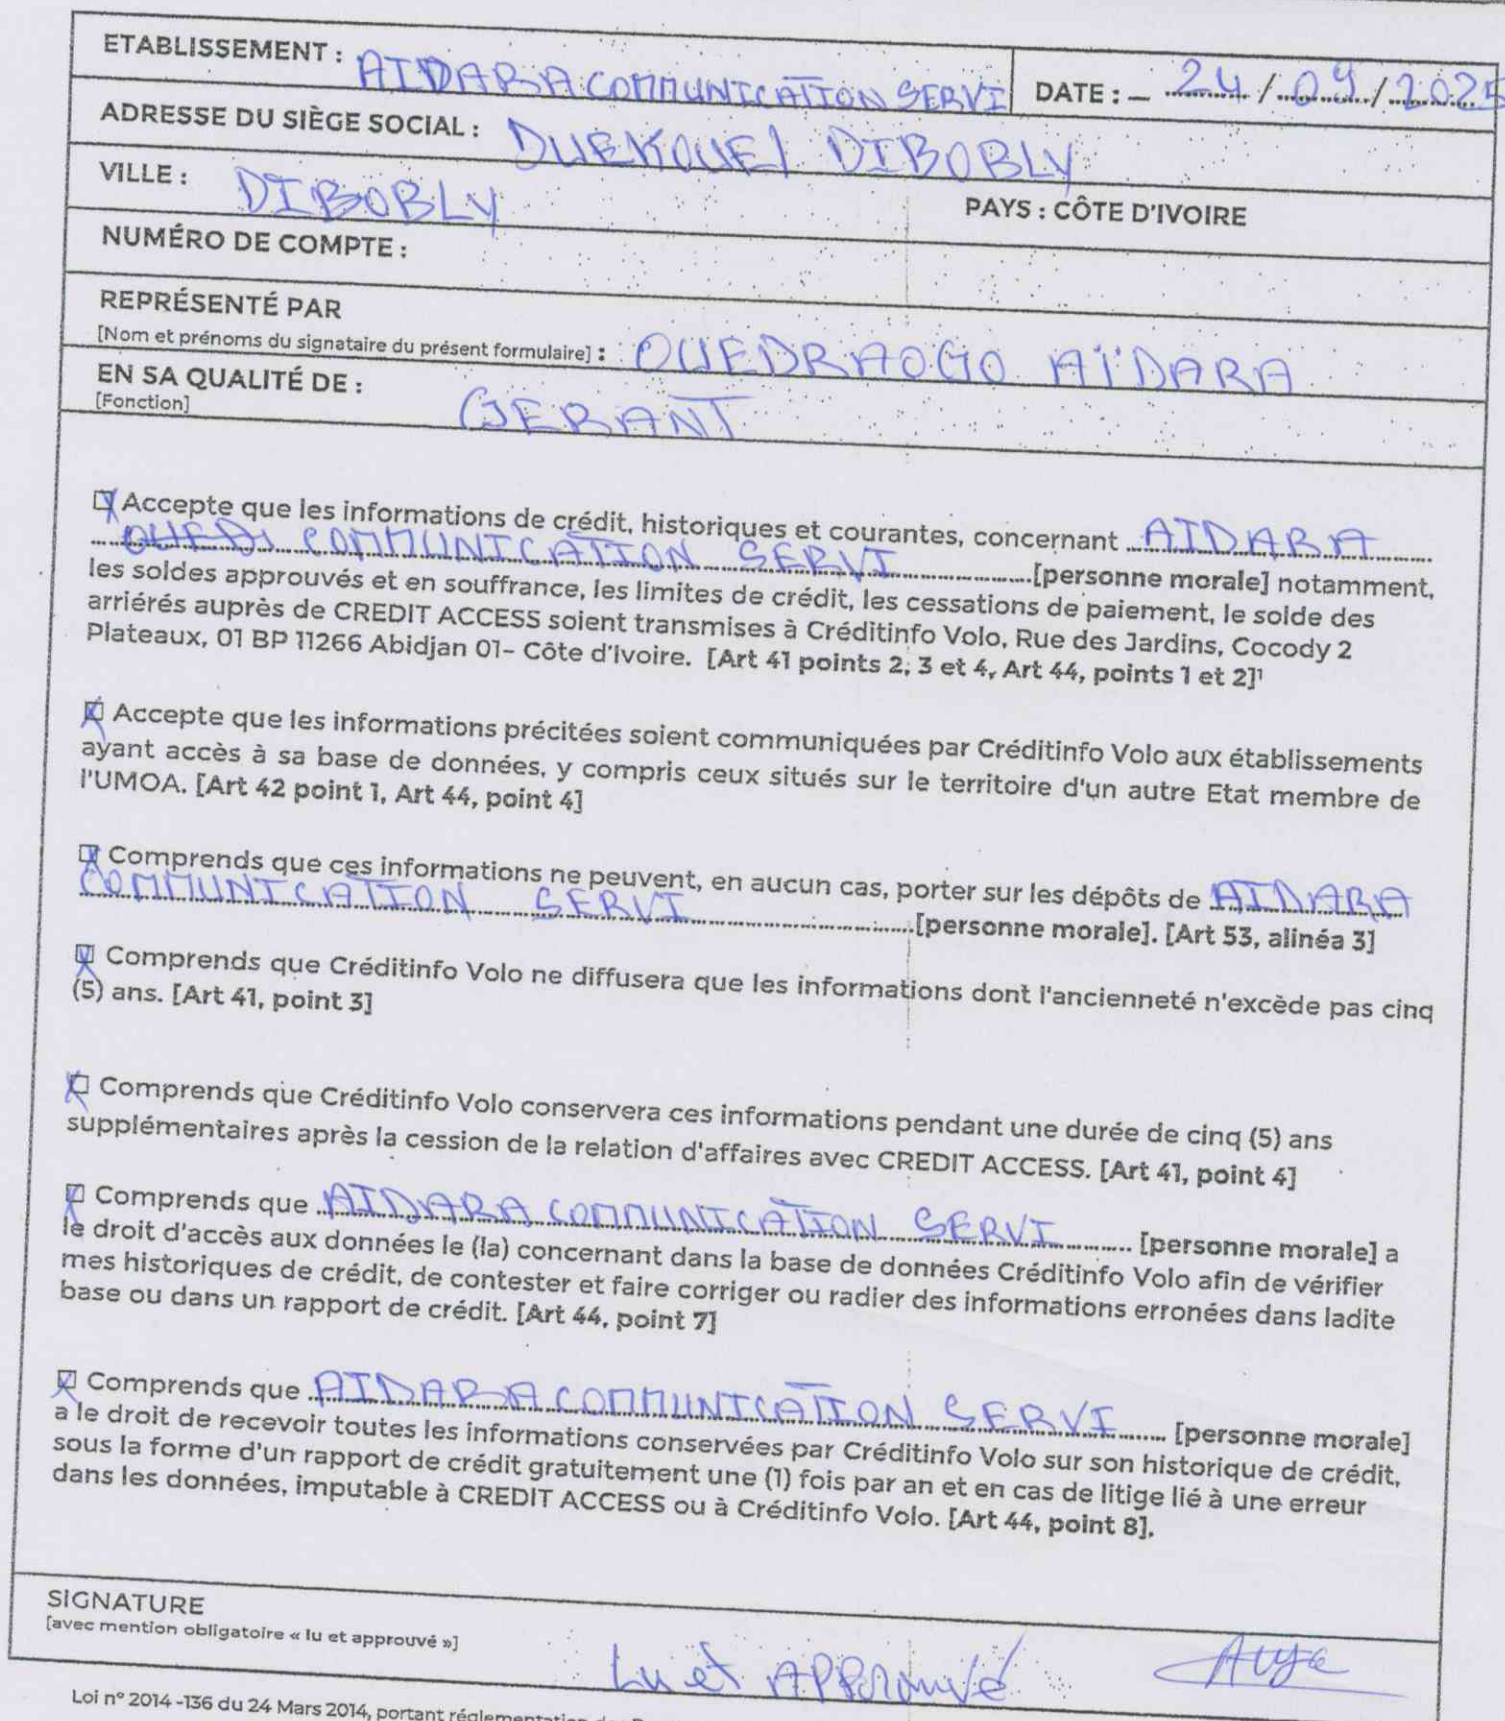 ETABLISSEMENT : AIDARA COMMUNICATION SERVI DATE : – 24 / 09 / 2025
ADRESSE DU SIÈGE SOCIAL : DUEKOUEI DIBOBLY
VILLE : DIBOBLY PAYS : CÔTE D'IVOIRE
NUMÉRO DE COMPTE :
REPRÉSENTÉ PAR
[Nom et prénoms du signataire du présent formulaire] : OUEDRAOGO AÏDARA
EN SA QUALITÉ DE : GERANT
[Fonction]
Accepte que les informations de crédit, historiques et courantes, concernant AIDARA
COMMUNICATION SERVI [personne morale] notamment,
les soldes approuvés et en souffrance, les limites de crédit, les cessations de paiement, le solde des
arriérés auprès de CREDIT ACCESS soient transmises à Créditinfo Volo, Rue des Jardins, Cocody 2
Plateaux, 01 BP 11266 Abidjan 01– Côte d'Ivoire. [Art 41 points 2, 3 et 4, Art 44, points 1 et 2]¹
Accepte que les informations précitées soient communiquées par Créditinfo Volo aux établissements
ayant accès à sa base de données, y compris ceux situés sur le territoire d'un autre Etat membre de
l'UMOA. [Art 42 point 1, Art 44, point 4]
Comprends que ces informations ne peuvent, en aucun cas, porter sur les dépôts de AIDARA
COMMUNICATION SERVI [personne morale]. [Art 53, alinéa 3]
Comprends que Créditinfo Volo ne diffusera que les informations dont l'ancienneté n'excède pas cinq
(5) ans. [Art 41, point 3]
Comprends que Créditinfo Volo conservera ces informations pendant une durée de cinq (5) ans
supplémentaires après la cession de la relation d'affaires avec CREDIT ACCESS. [Art 41, point 4]
Comprends que AIDARA COMMUNICATION SERVI [personne morale] a
le droit d'accès aux données le (la) concernant dans la base de données Créditinfo Volo afin de vérifier
mes historiques de crédit, de contester et faire corriger ou radier des informations erronées dans ladite
base ou dans un rapport de crédit. [Art 44, point 7]
Comprends que AIDARA COMMUNICATION SERVI [personne morale]
a le droit de recevoir toutes les informations conservées par Créditinfo Volo sur son historique de crédit,
sous la forme d'un rapport de crédit gratuitement une (1) fois par an et en cas de litige lié à une erreur
dans les données, imputable à CREDIT ACCESS ou à Créditinfo Volo. [Art 44, point 8].
SIGNATURE
[avec mention obligatoire « lu et approuvé »]
Lu et APProuvé
Loi n° 2014 -136 du 24 Mars 2014, portant réglementation